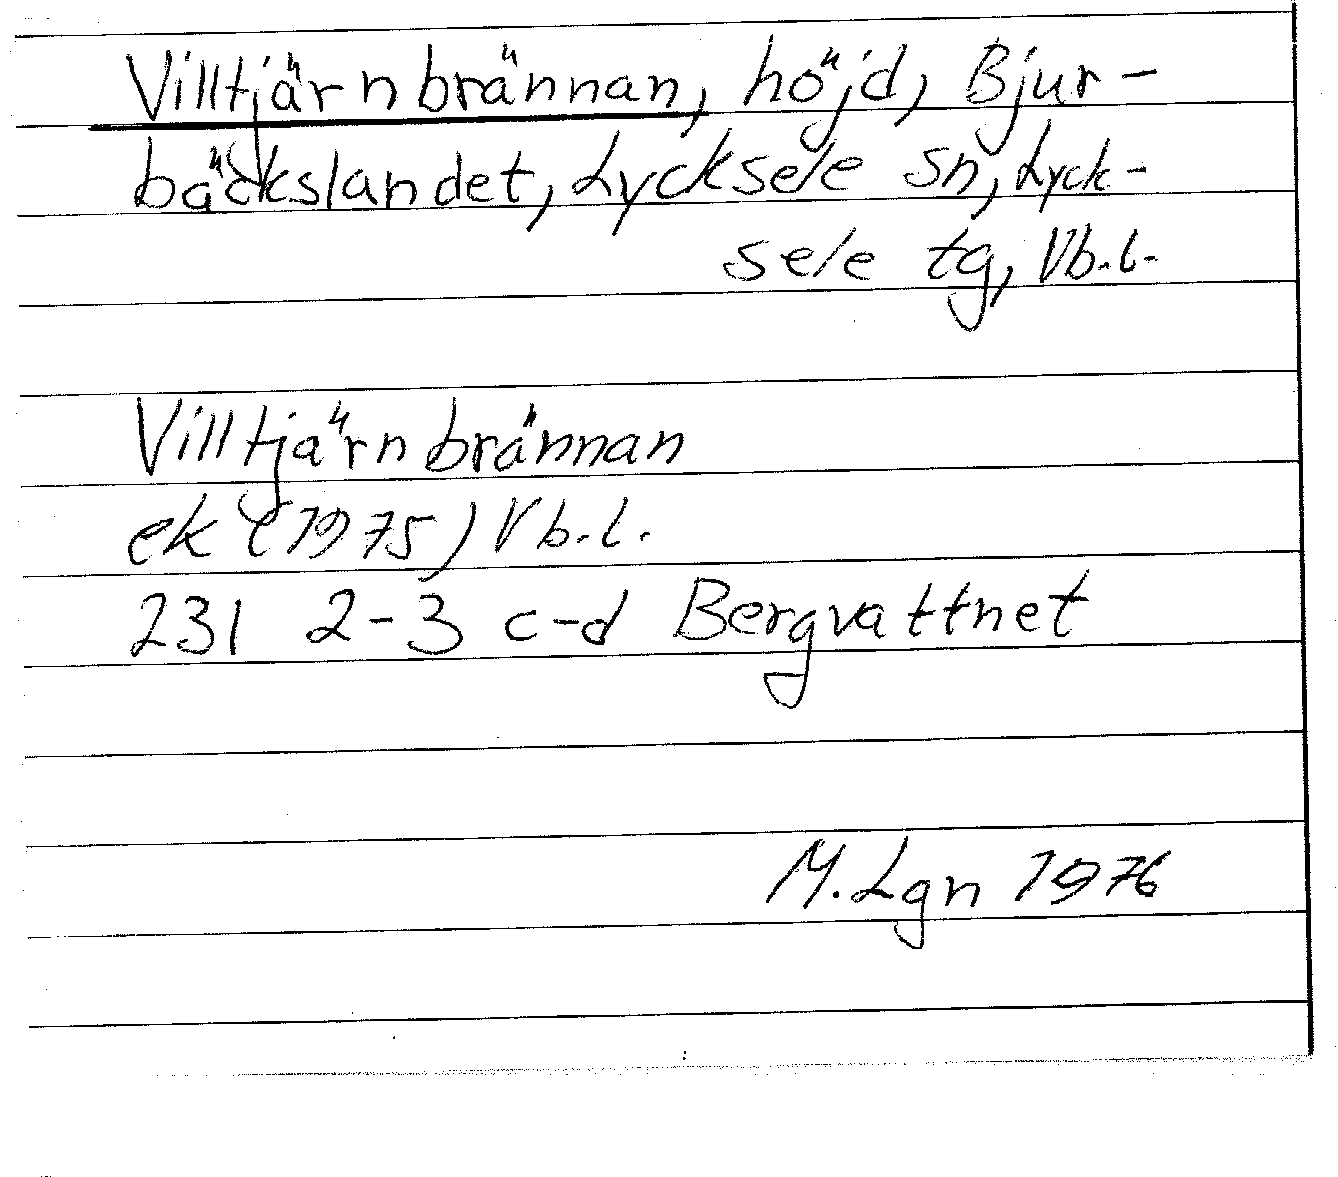 Villtjärnbrännan, höjd, Bjur-
bäckslandet, Lycksele sn, Lyck-
sele tg, Vb.l.
Villtjärnbrännan
ek (1975) Vb.l.
231 2-3 c-d Bergvattnet
M. Lgn 1976